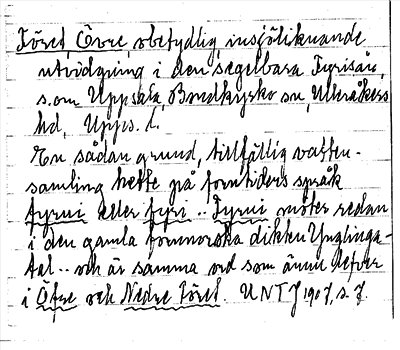 Föret, Övre, obetydlig, insjöliknande
utvidgning i den segelbara Fyrisån,
s.om Uppsala, Bondkyrko sn, Ulleråkers
hd, Upps. l.
En sådan grund, tillfällig vatten-
samling hette på forntidens språk
fyrni eller fyri .. Fyrni möter redan
i den gamla fornnorska dikten Ynglinga-
tal .. och är samma ord som ännu lefver
i Öfre och Nedre Föret. UNTJ 1907, s. 7.